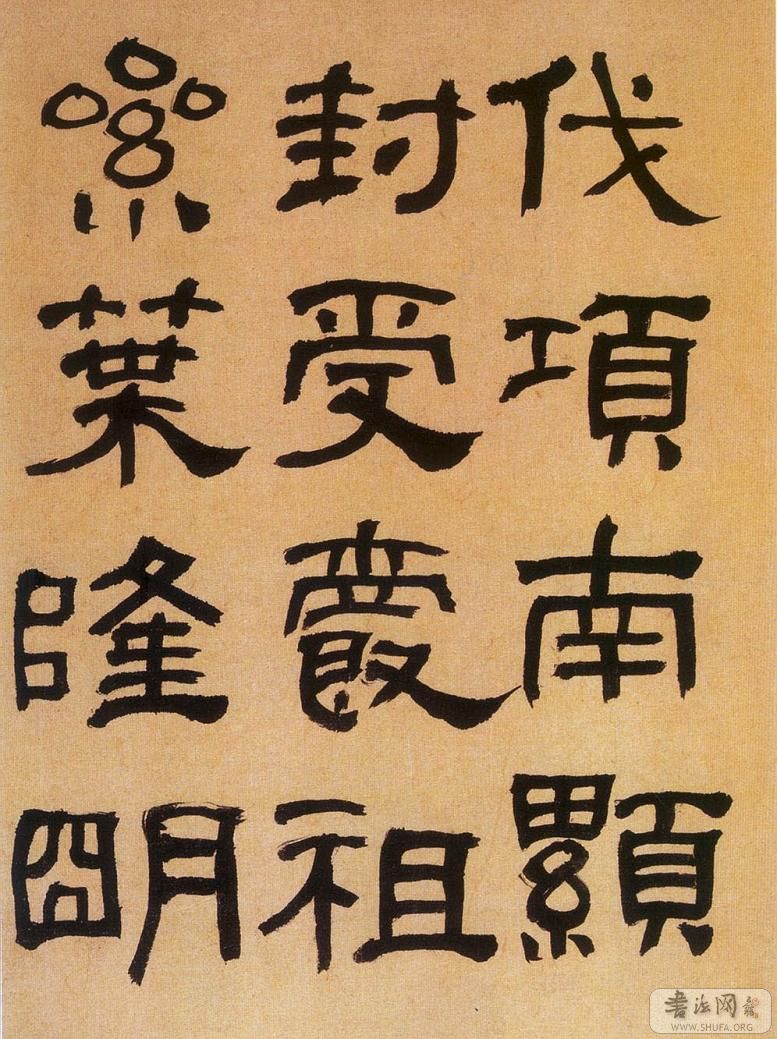 伐項南顯
封受爵祖
絫葉隆朙
書法网
WWW.SHUFA.ORG